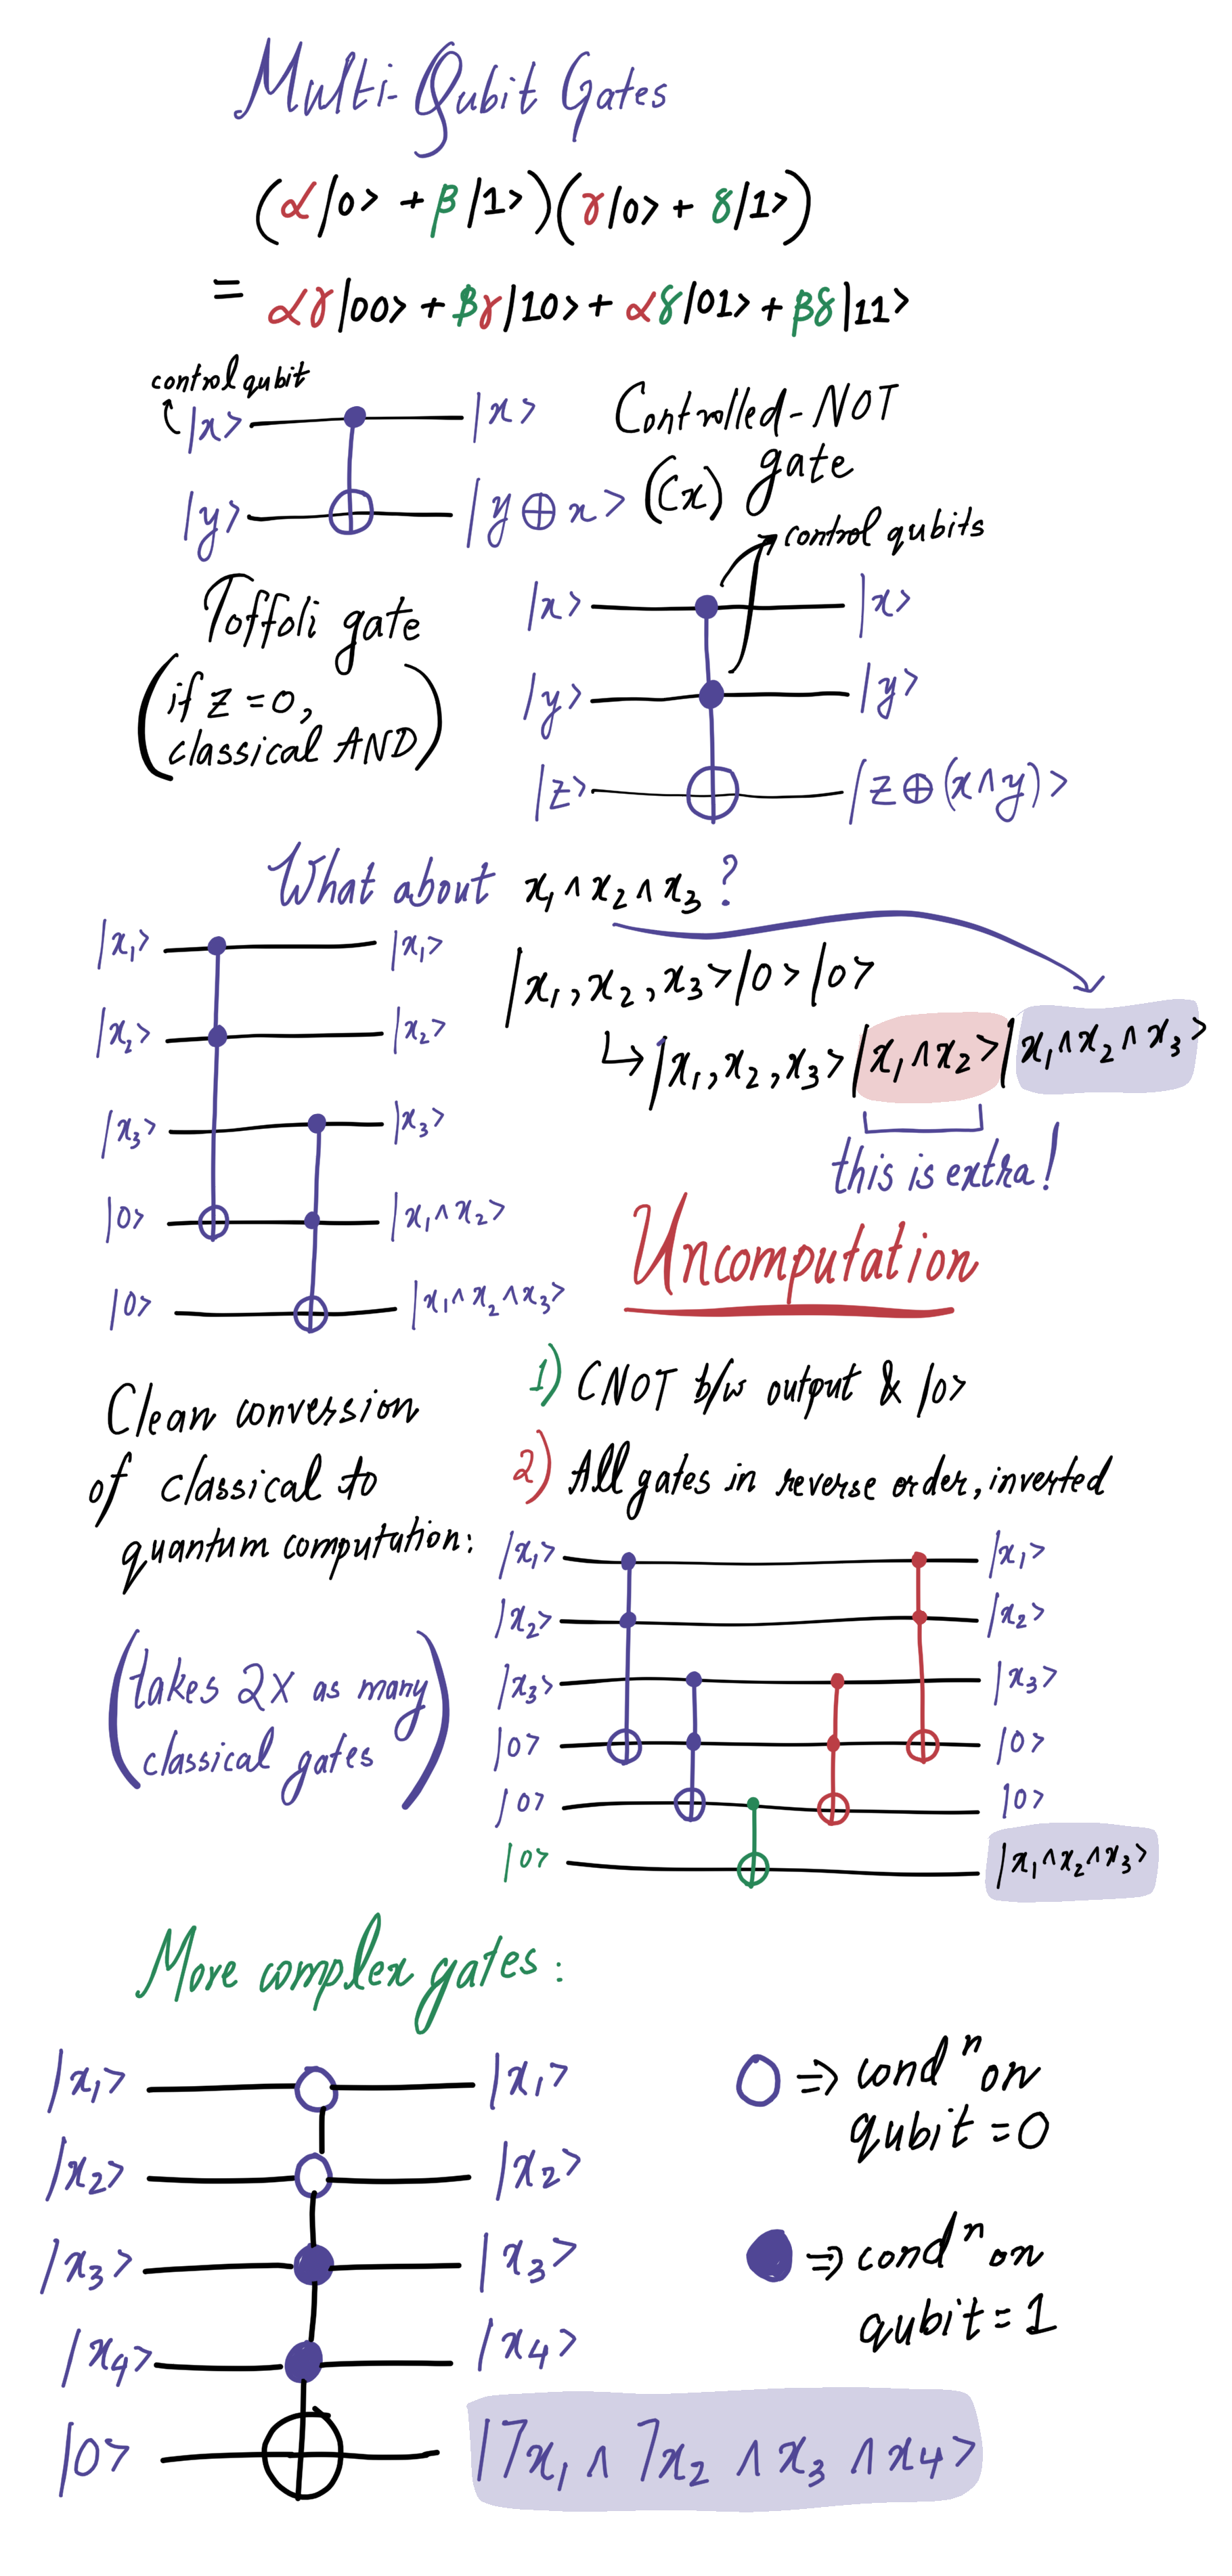 Multi-Qubit Gates
(α|0> + β|1>)(γ|0> + δ|1>)
= αγ|00> + βγ|10> + αδ|01> + βδ|11>
control qubit
|x>
|x>
|y>
|y ⊕ x>
Controlled-NOT
(CX) gate
Toffoli gate
(if z = 0,
classical AND)
control qubits
|x>
|x>
|y>
|y>
|z>
|z ⊕ (x ∧ y)>
What about x₁ ∧ x₂ ∧ x₃ ?
|x₁>
|x₁>
|x₂>
|x₂>
|x₃>
|x₃>
|0>
|x₁ ∧ x₂>
|0>
|x₁ ∧ x₂ ∧ x₃>
|x₁, x₂, x₃>|0>|0>
↳ |x₁, x₂, x₃>|x₁ ∧ x₂>|x₁ ∧ x₂ ∧ x₃>
this is extra!
Uncomputation
1) CNOT b/w output & |0>
2) All gates in reverse order, inverted
Clean conversion
of classical to
quantum computation:
(takes 2X as many
classical gates)
|x₁>
|x₁>
|x₂>
|x₂>
|x₃>
|x₃>
|0>
|0>
|0>
|0>
|0>
|x₁ ∧ x₂ ∧ x₃>
More complex gates:
|x₁>
|x₁>
|x₂>
|x₂>
|x₃>
|x₃>
|x₄>
|x₄>
|0>
|¬x₁ ∧ ¬x₂ ∧ x₃ ∧ x₄>
⇒ condⁿ on
qubit = 0
⇒ condⁿ on
qubit = 1